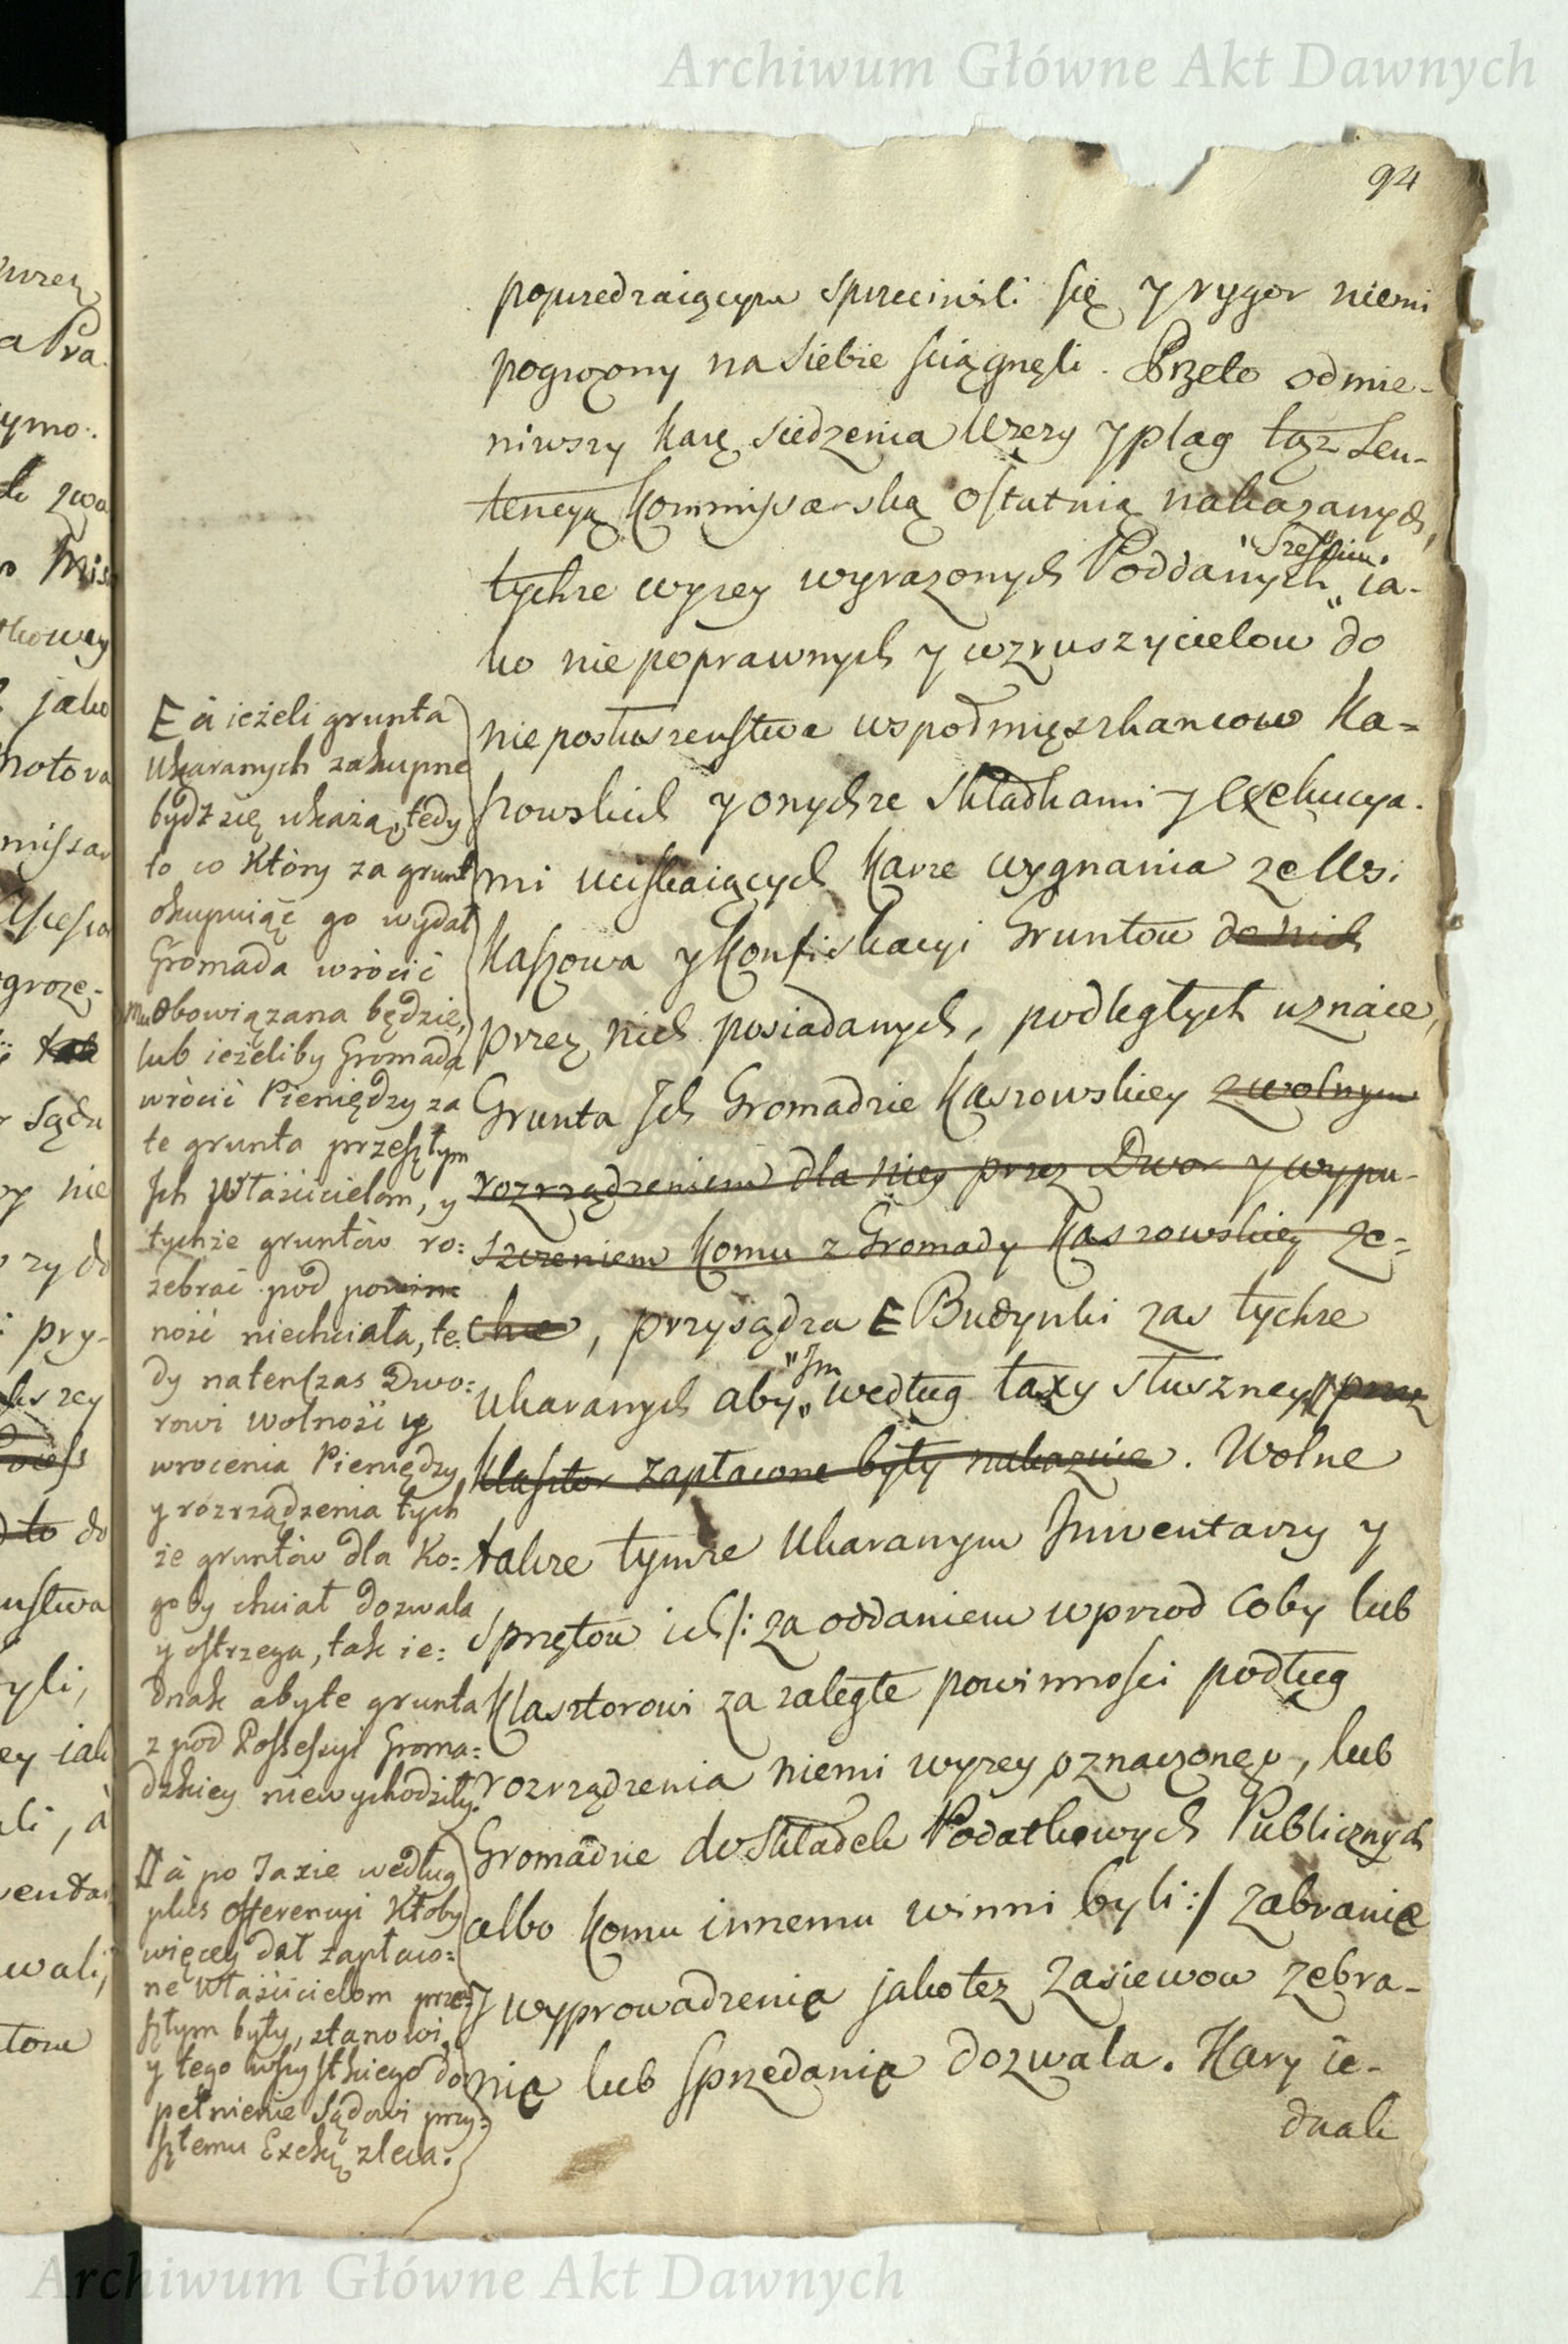 Archiwum Główne Akt Dawnych
94
poprzedzaiącym sprzeciwili się y rygor niemi
pogrożony na siebie sciągnęli. Przeto odmie-
niwszy karę siedzenia Wieży y plag tąż Sen-
tencyą Kommissarską ostatnią nakazanych,
"Sześciu"
tychże wyżey wyrazonych Poddanych " ia-
ko nie poprawnych y wzruszycielow do
nieposłuszenstwa wspołmięszkancow Ka=
szowskich y onychże składkami y exekucya-
mi uciskaiących karze wygnania ze Wsi
Kaszowa y Konfiskacyi Gruntow do nich
przez nich posiadanych, podległych uznaie,
Grunta Ich Gromadzie Kaszowskiey z wolnym
rozrządzeniem dla niey przez Dwor y wypu-
szczeniem komu z Gromady Kaszowskiey ze=
chce, przysądza E Budynki zas tychże
"Im
ukaranych aby " według taxy słuszney przez
Klasztor zapłacone były nakazuie. Wolne
takze tymże Ukaranym Inwentarzy y
Sprzętow ich /: za oddaniem wprzod coby lub
Klasztorowi za zaległe powinnosci podług
rozrządzenia niemi wyżey oznaczonego, lub
Gromadzie do Składek Podatkowych Publicznych
albo komu innemu winni byli :/ zabranie
y wyprowadzenie jako tez Zasiewow zebra-
nie lub sprzedanie dozwala. Kary ie-
dnak
E à ieżeli grunta
ukaranych zakupne
bydź się ukażą, tedy
to co Który za grunt
okupuiąc go wydał
Gromada wrócić
mu obowiązana będzie,
lub ieżeliby Gromada
wrócić Pieniędzy za
te grunta przeszłym
Ich Właścicielom, y
tychże gruntów ro:
zebrać pod powin
ność niechciała, te:
dy natenczas Dwo:
rowi wolność
wrocenia Pieniędzy
y rozrządzenia tych
że gruntów dla Ko:
goby chciał dozwala
y ostrzega, tak ie:
dnak abyte grunta
z pod Possessyi Groma:
dzkiey niewychodziły.
à po Taxie według
plus offerencyi Ktoby
więcey dał zapłaco:
ne Właścicielom prze:
szłym były, stanowi
y tego wszystkiego do
pełnienie Sądowi przy:
szłemu Exekų zleca.
Archiwum Główne Akt Dawnych